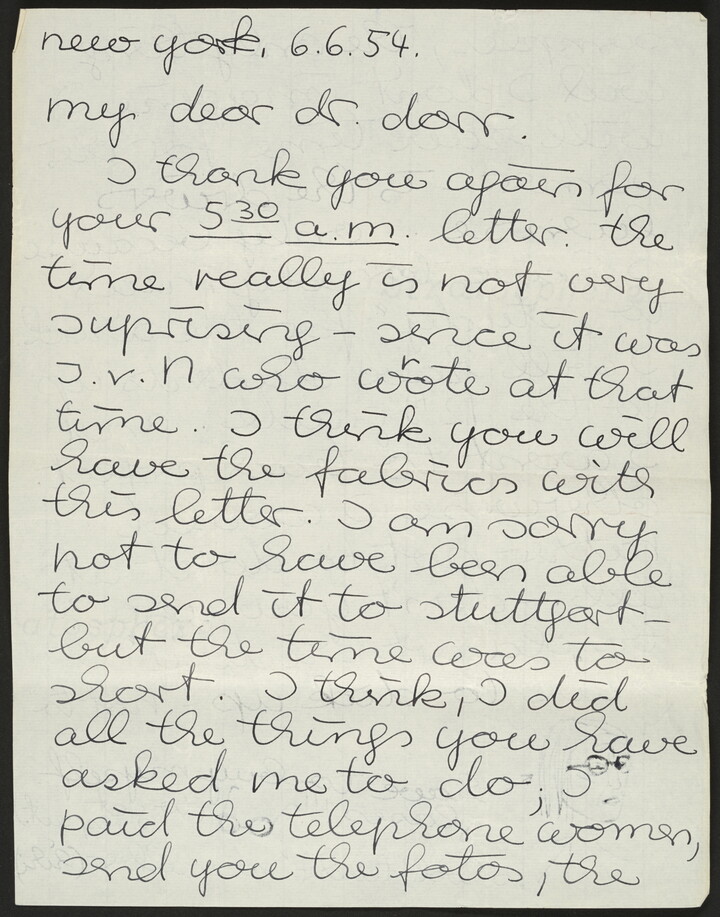 new york, 6.6.54.
my dear dr. dorr.
I thank you again for
your 5 30 a.m. letter. the
time really is not very
suprising – since it was
J.v.N who wrote at that
time. I think you will
have the fabrics with
this letter. I am sorry
not to have been able
to send it to stuttgart –
but the time was to
short. I think, I did
all the things you have
asked me to do; I
paid the telephone women,
send you the fotos, the